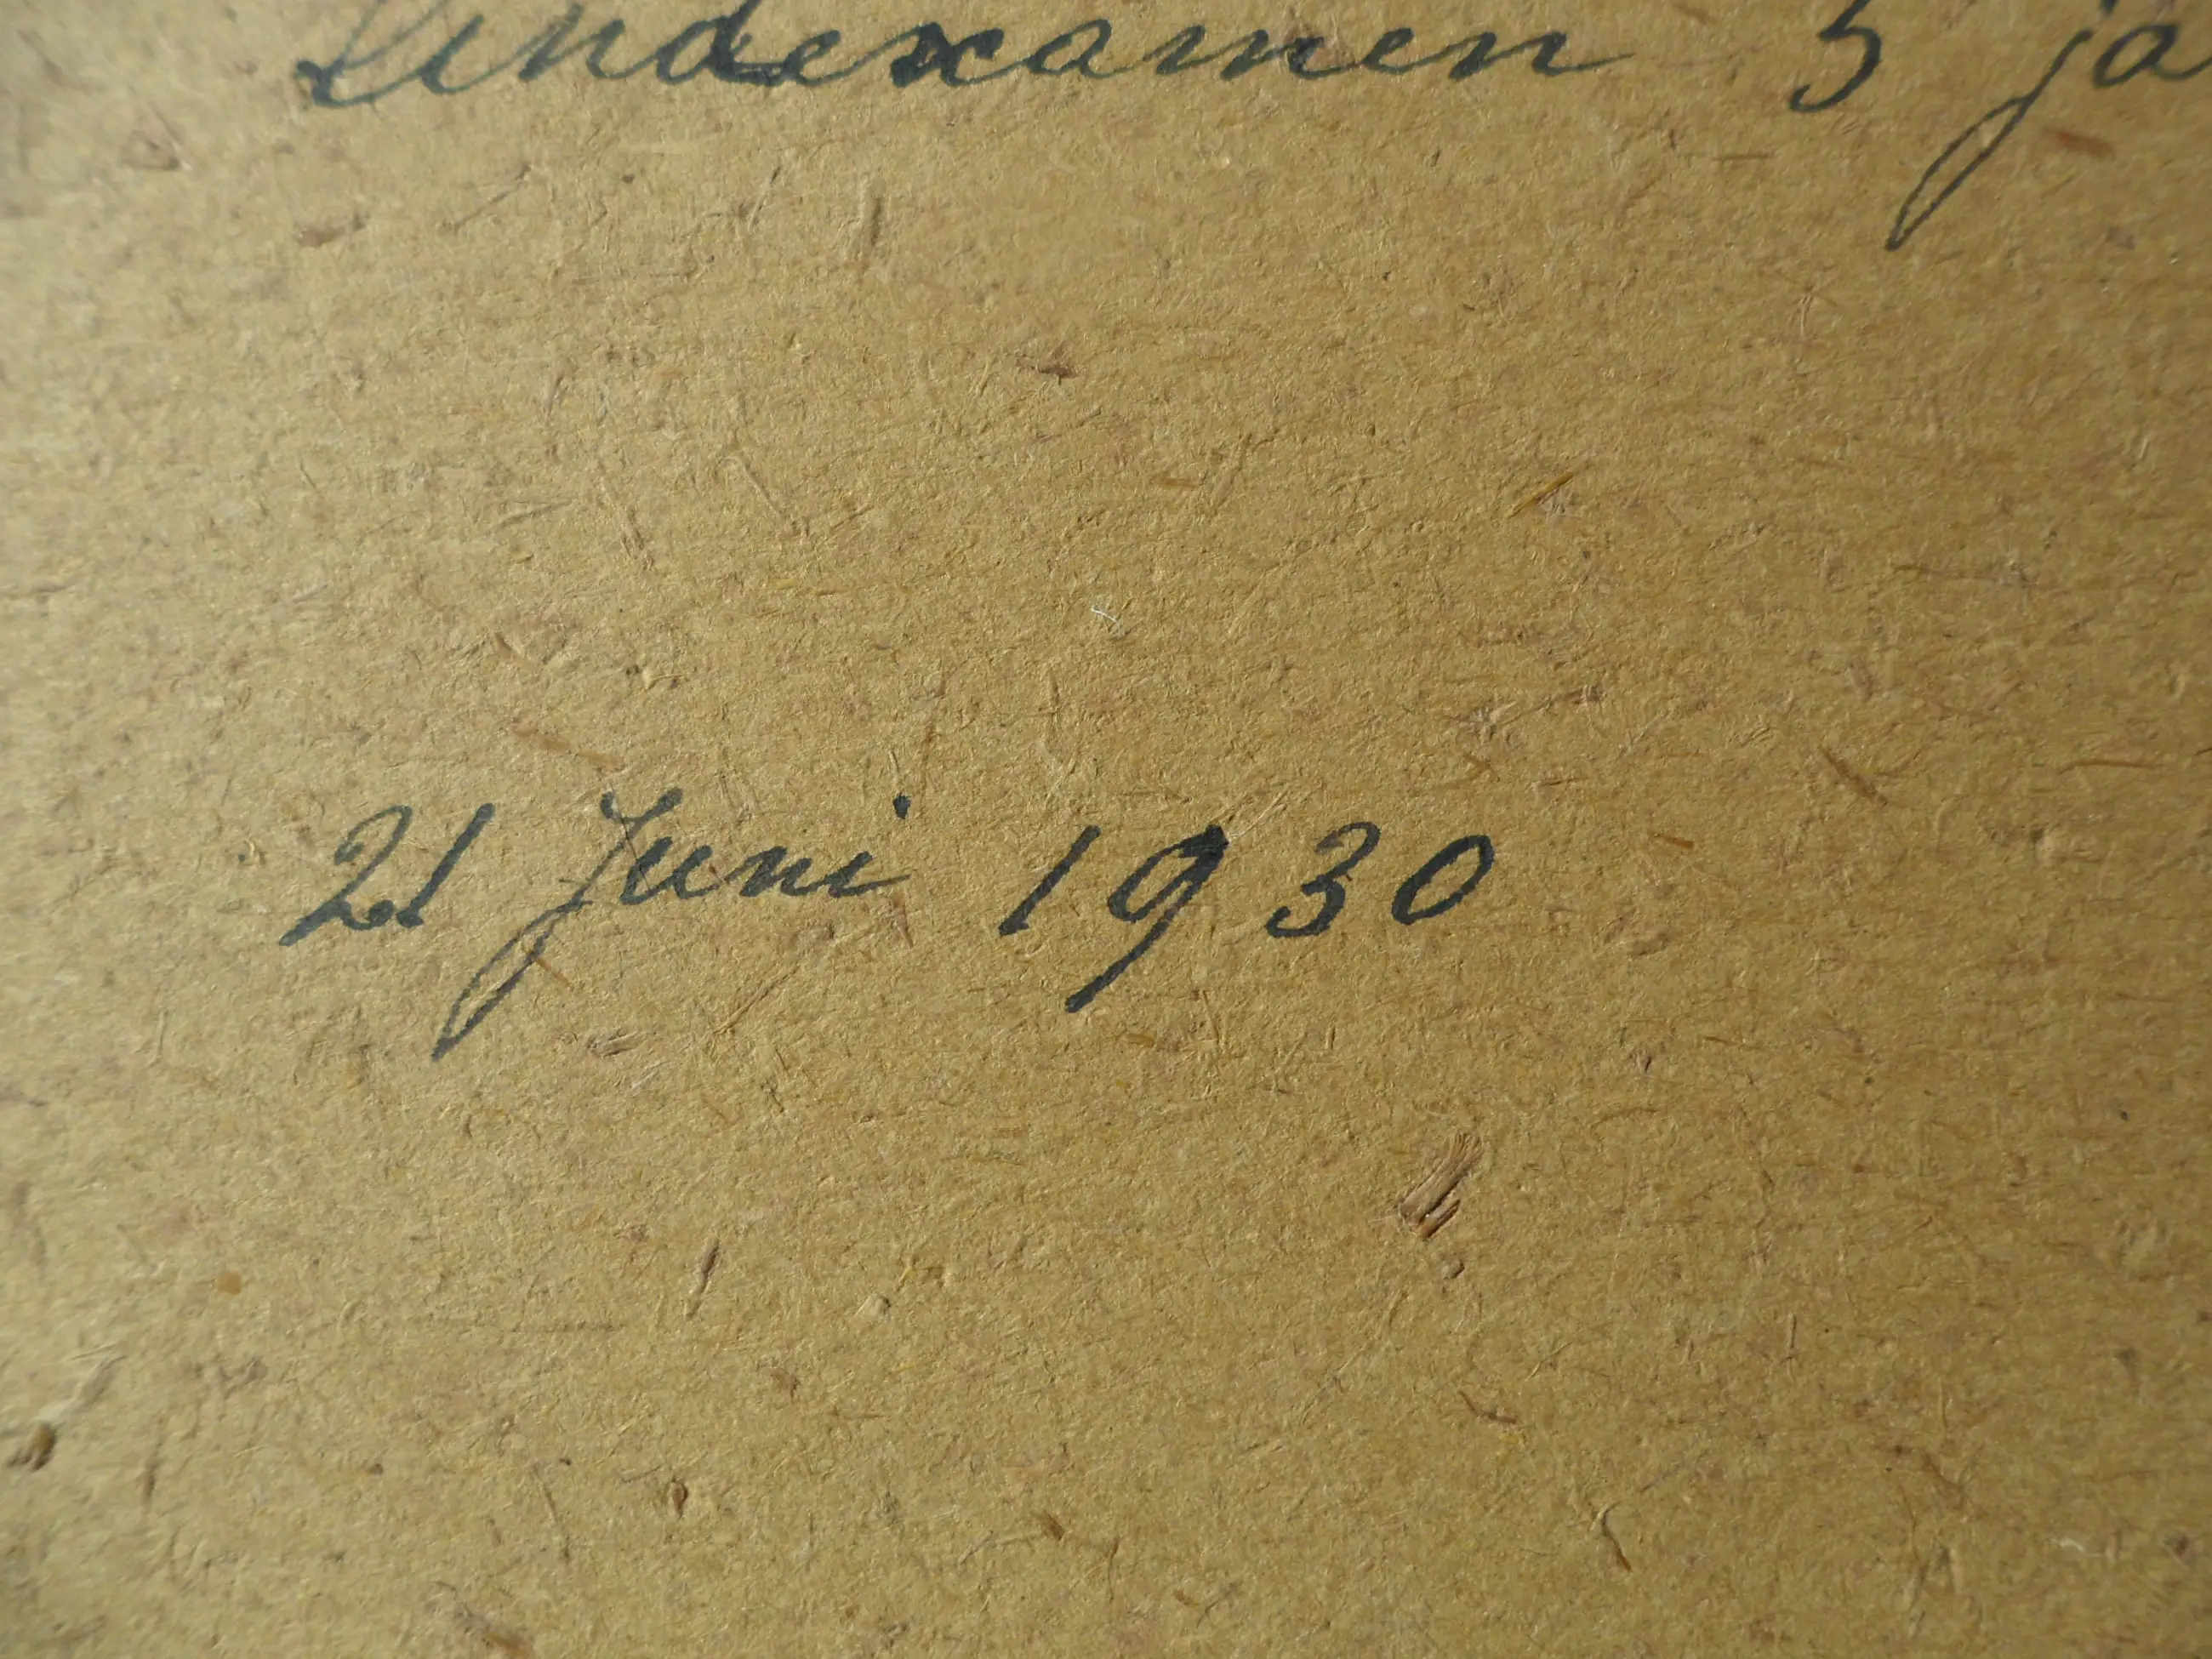 Eindexamen 5 ja
21 Juni 1930